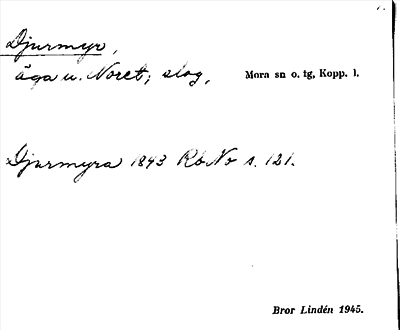 Djurmyr,
äga u. Noret; slog,
Mora sn o. tg, Kopp. l.
Djurmyra 1843 RbNo s. 121.
Bror Lindén 1945.